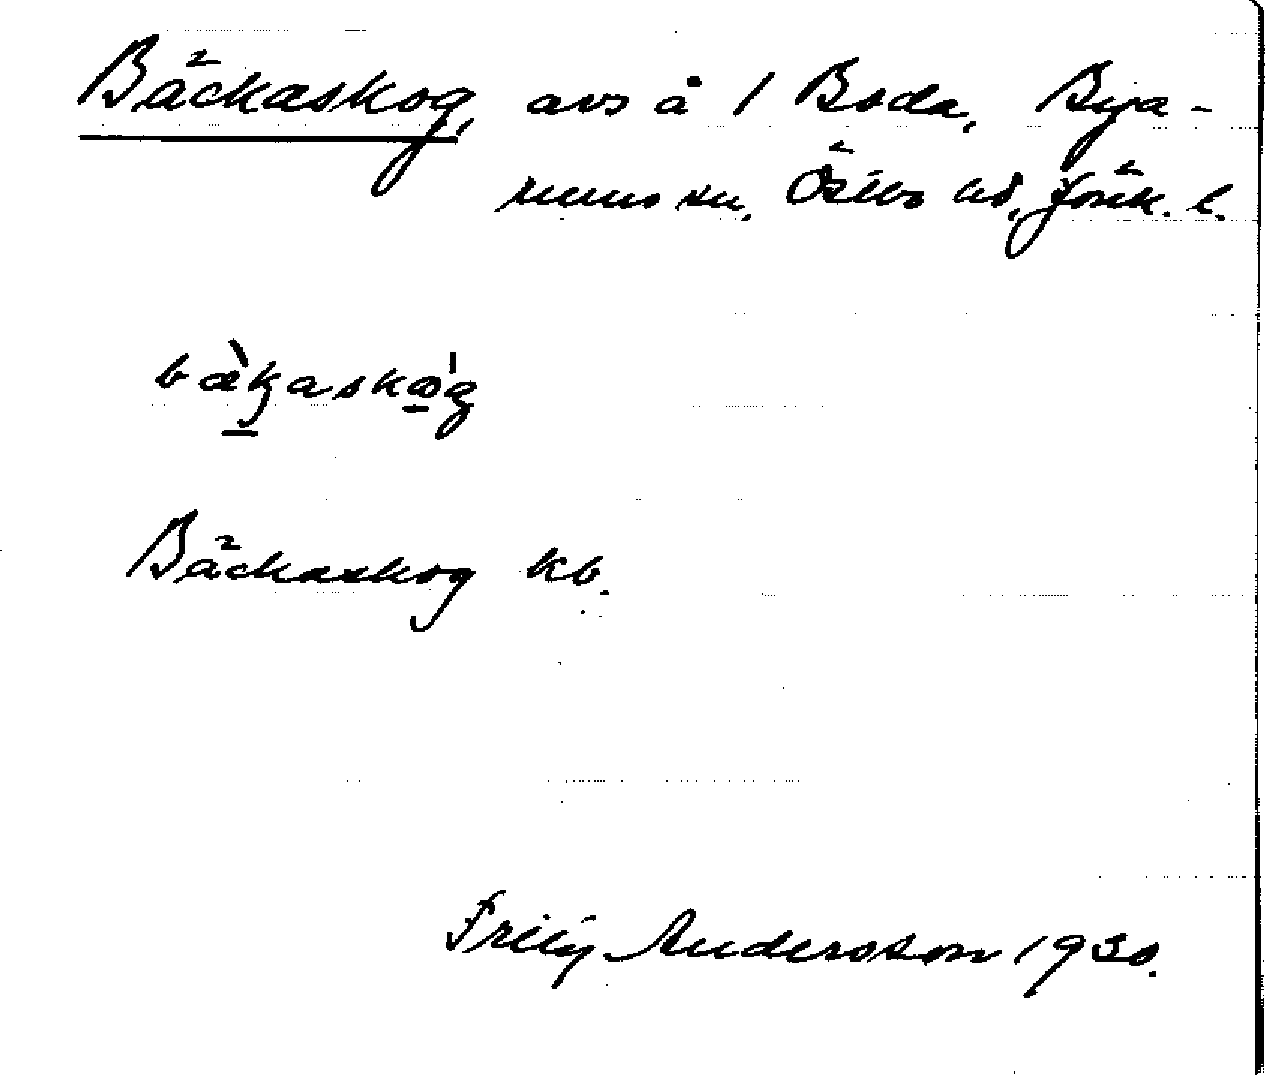 Bäckaskog, avs å 1 Boda, Bya-
rums sn, Östbo hd, Jönk. l.
bæ̀kaskǿg
Bäckaskog kb.
Andersson 1930.